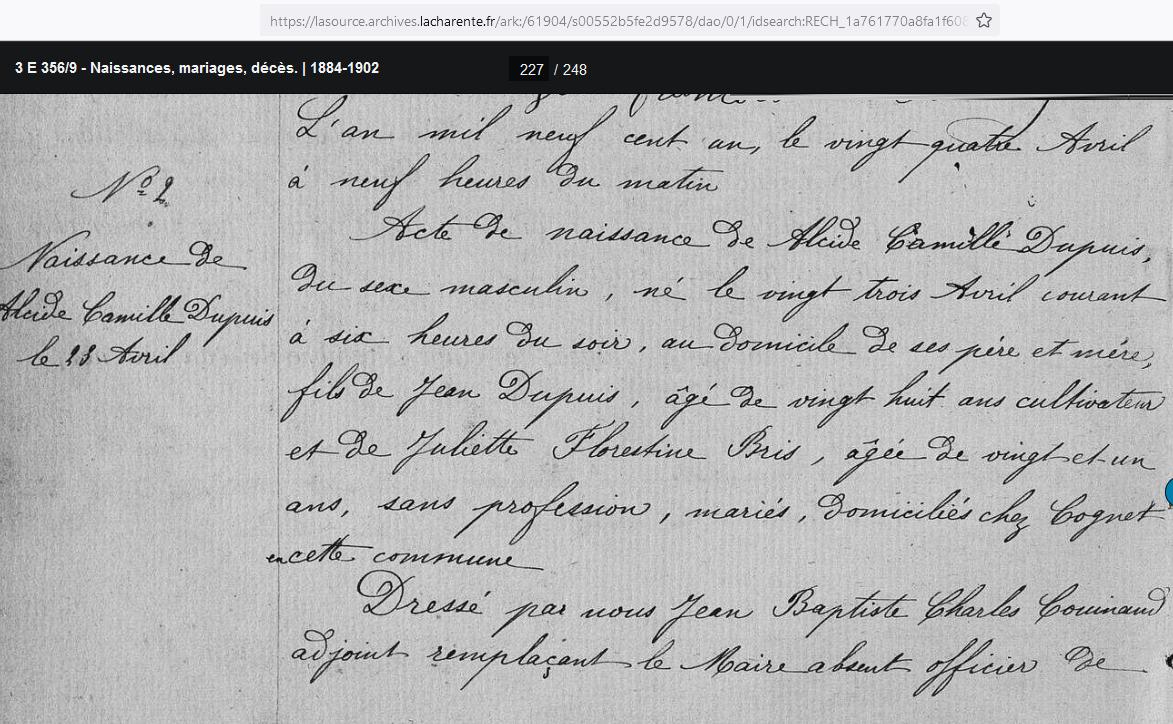 https://lasource.archives.lacharente.fr/ark:/61904/s00552b5fe2d9578/dao/0/1/idsearch:RECH_1a761770a8fa1f608
3 E 356/9 - Naissances, mariages, décès. | 1884-1902
227 / 248
L'an mil neuf cent un, le vingt quatre Avril
à neuf heures du matin
Acte de naissance de Alcide Camille Dupuis,
du sexe masculin, né le vingt trois Avril courant
à six heures du soir, au domicile de ses père et mère,
fils de Jean Dupuis, âgé de vingt huit ans cultivateur
et de Juliette Florestine Bris, âgée de vingt et un
ans, sans profession, mariés, domiciliés chez Cognet
en cette commune
Dressé par nous Jean Baptiste Charles Couinaud
adjoint remplaçant le Maire absent officier de
No 2
Naissance de
Alcide Camille Dupuis
le 23 Avril